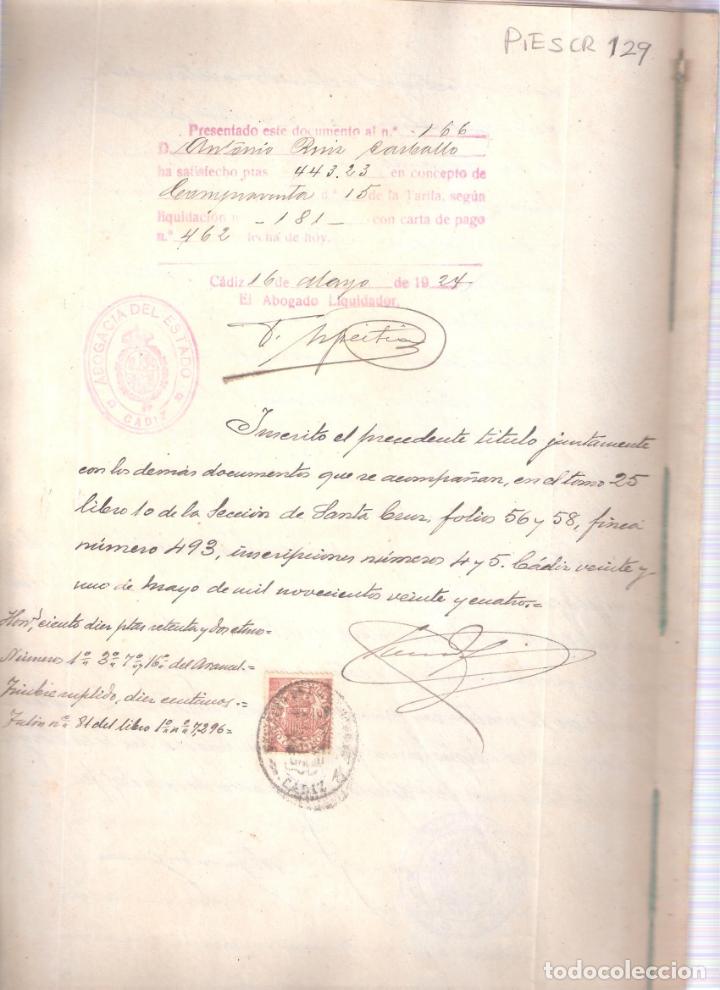 PiESCR 129
Presentado este documento al n.º 166
D. Antonio Ruiz Carballo
ha satisfecho ptas 443.23 en concepto de
Compraventa n.º 15 de la Tarifa, según
liquidación n.º - 181 - con carta de pago
n.º 462 fecha de hoy.
Cádiz 16 de Mayo de 1924
El Abogado Liquidador,
ABOGACIA DEL ESTADO
CADIZ
Inscrito el precedente titulo juntamente
con los demás documentos que se acompañan, en el tomo 25
libro 10 de la Sección de Santa Cruz, folios 56 y 58, finca
número 493, inscripciones números 4 y 5. Cádiz veinte y
uno de mayo de mil novecientos veinte y cuatro.=
Honˢ, ciento diez ptas setenta y dos ctmos
Números 1º 3º 7º y 16º del Arancel.=
Timbre suplido, diez centimos.=
Talón nº 81 del libro 1º nº 7,296=
CADIZ
todocoleccion
todocoleccion.net